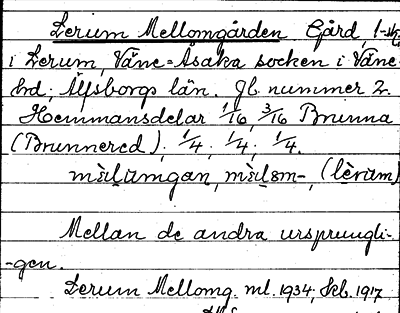 Lerum Mellomgården Gård, 1-sk,
i Lerum, Väne=Åsaka socken i Väne
hd; Älfsborgs län. Jb. nummer 2.
Hemmansdelar 1/16, 3/16 Brunna
(Brunnered); 1/4; 1/4; 1/4.
Mellan de andra ursprungli-
-gen.
Lerum Mellomg. ml. 1934; Skb. 1917